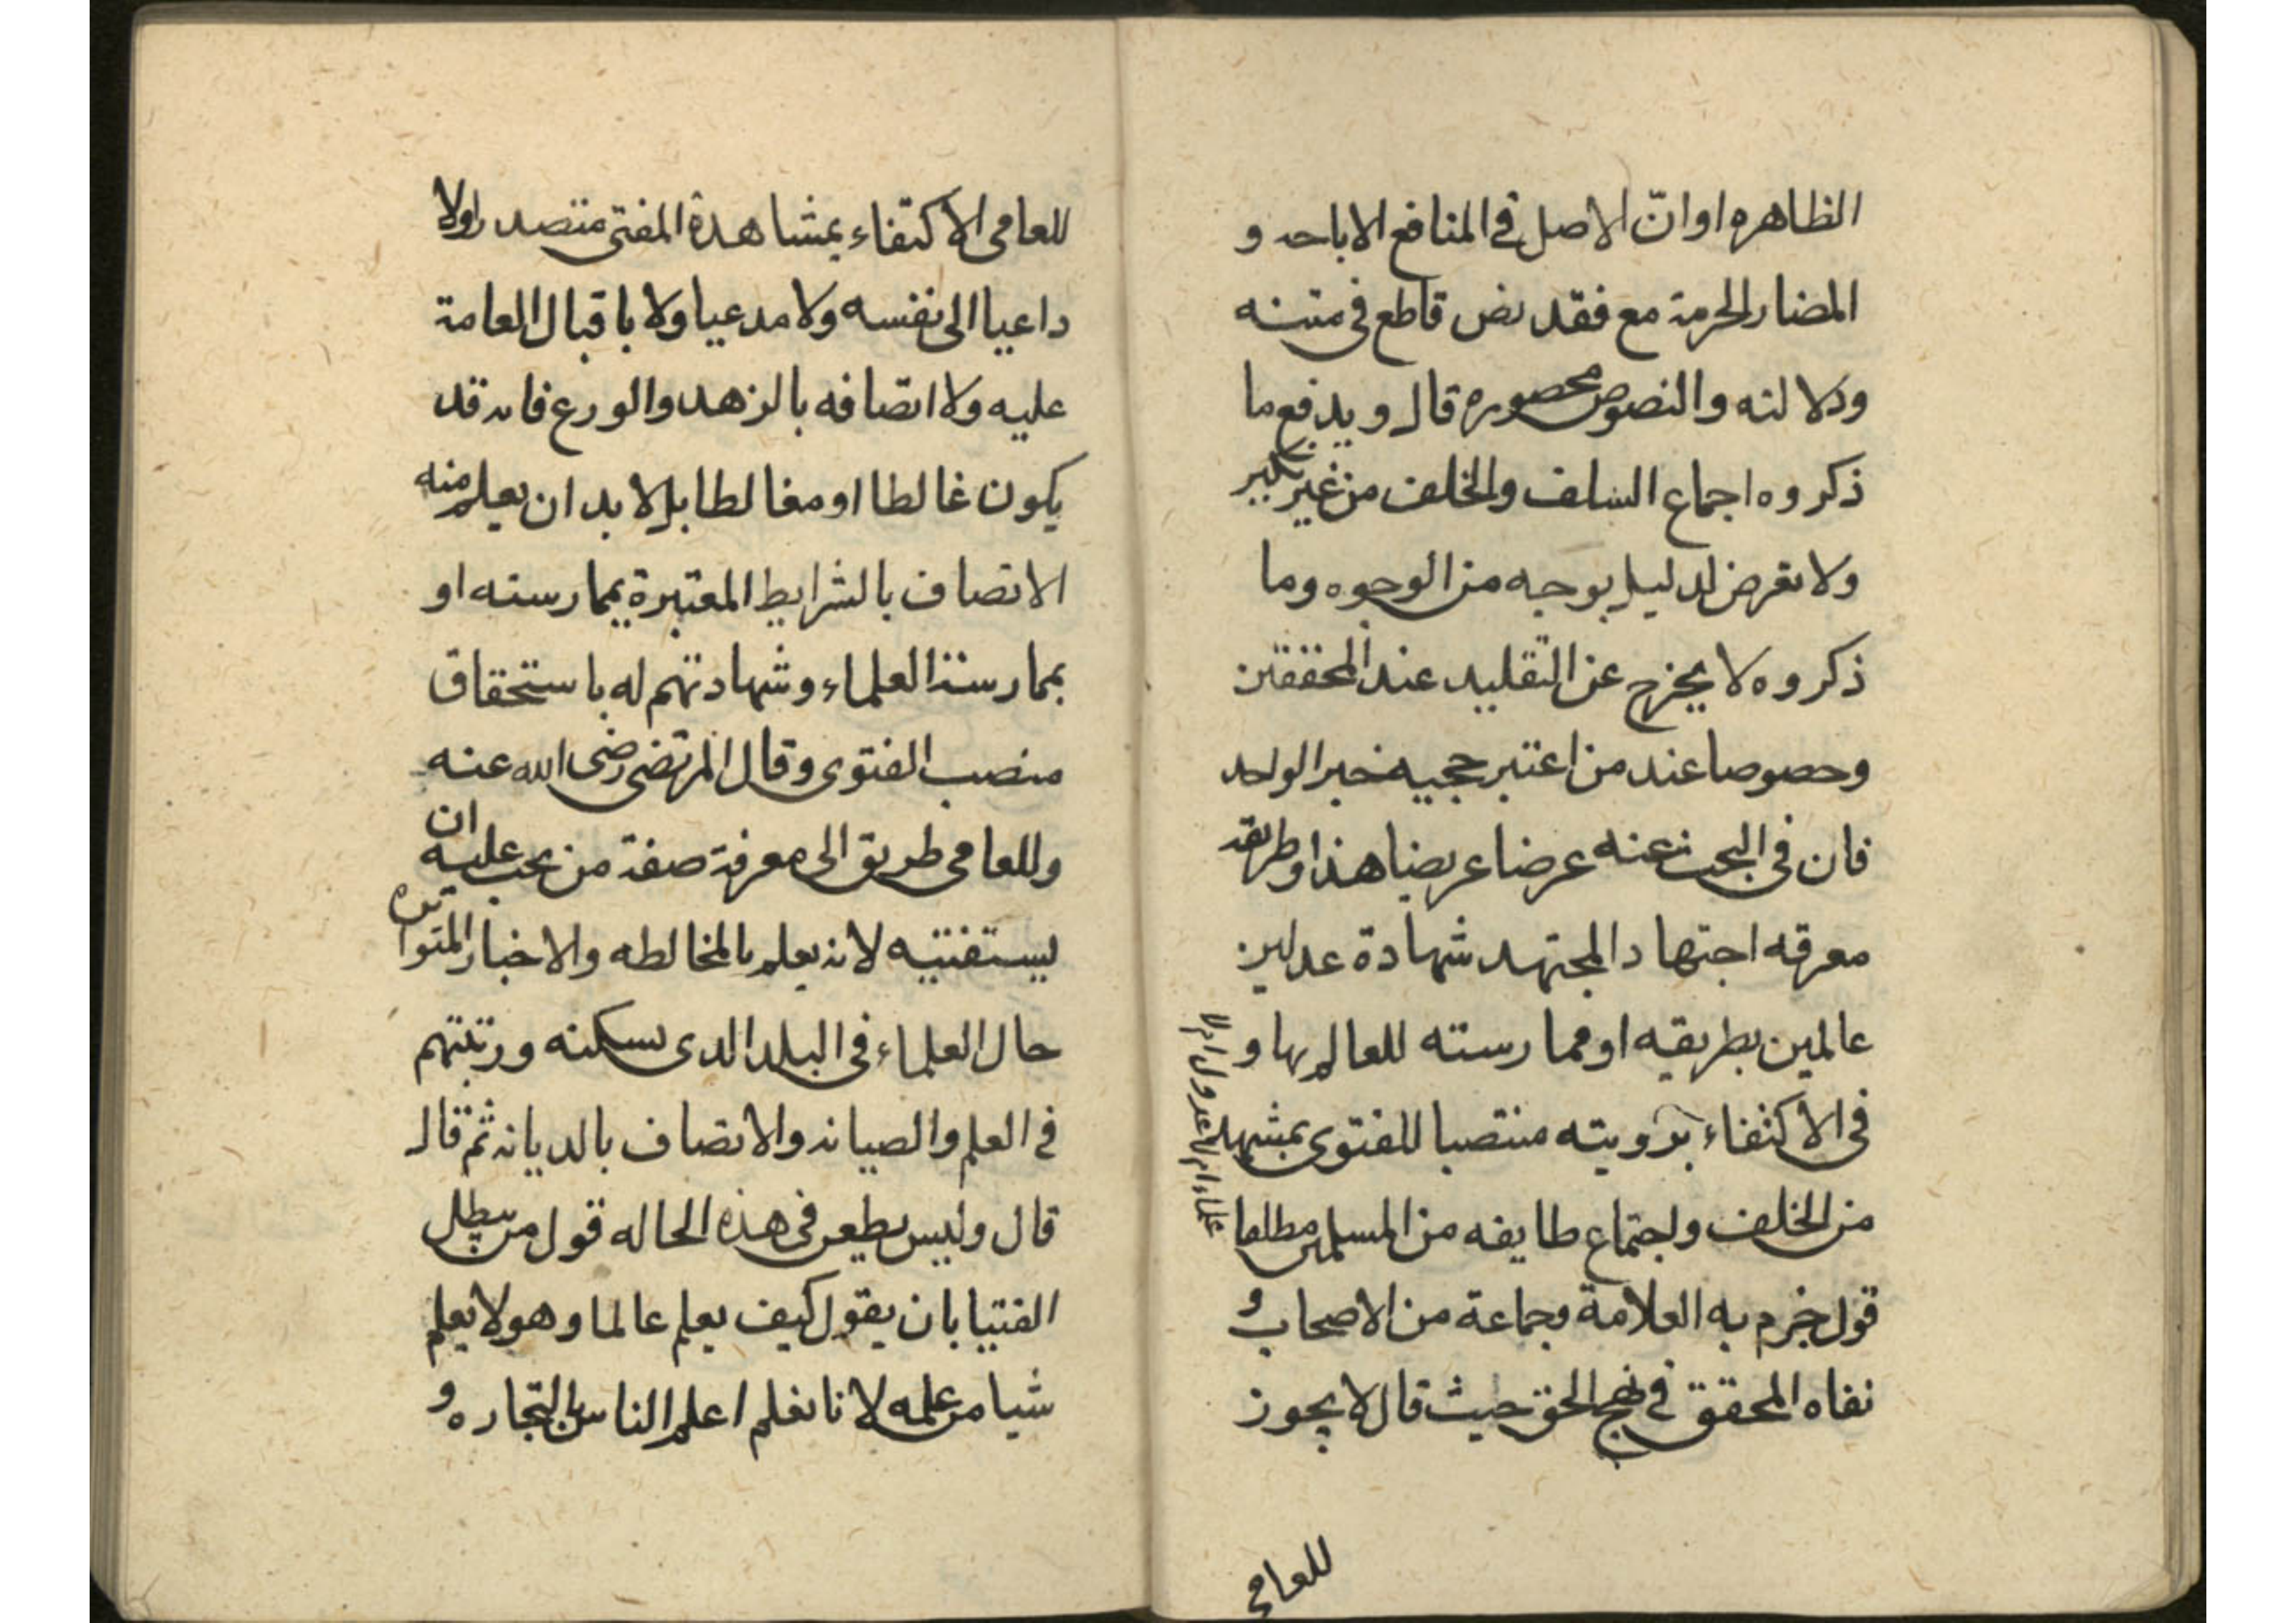 الظاهره او انّ الاصل في المنافع الاباحه و
المضار الحرمة مع فقد نص قاطع في متنه
ودلالته والنصوص محصوره قال ويدفع ما
ذكروه اجماع السلف والخلف من غير نكير
ولا تعرض لدليل بوجه من الوجوه وما
ذكروه لا يخرج عن التقليد عند المحققين
وخصوصا عند من اعتبر حجيه خبر الواحد
فان في البحث عنه عرضا عريضا هذا وطريقه
معرفه اجتهاد المجتهد شهادة عدلين
عالمين بطريقه او ممارسته للعالم بها و
في الاكتفاء برويته منتصبا للفتوى بمشهد
من الخلف واجتماع طايفه من المسلمين مطلقا
علماء ام لا عدول ام لا
قول جزم به العلامة وجماعة من الاصحاب و
نفاه المحقق في نهج الحق حيث قال لا يجوز
للعامي
للعامي الاكتفاء بمشاهدة المفتي متصدرا ولا
داعيا الى نفسه ولا مدعيا ولا باقبال العامة
عليه ولا اتصافه بالزهد والورع فانه قد
يكون غالطا او مغالطا بل لا بد ان يعلم منه
الاتصاف بالشرايط المعتبرة بممارسته او
بممارسة العلماء وشهادتهم له باستحقاق
منصب الفتوى وقال المرتضى رضى الله عنه
وللعامي طريق الى معرفة صفة من يجب عليه ان
يستفتيه لانه يعلم بالمخالطه والاخبار المتواتره
حال العلماء في البلد الذى يسكنه ورتبتهم
في العلم والصيانه والاتصاف بالديانه ثم قال
قال وليس يطعن في هذه الحاله قول من يبطل
الفتيا بان يقول كيف يعلم عالما وهو لا يعلم
شيا من علمه لانا نعلم اعلم الناس بالتجاره و